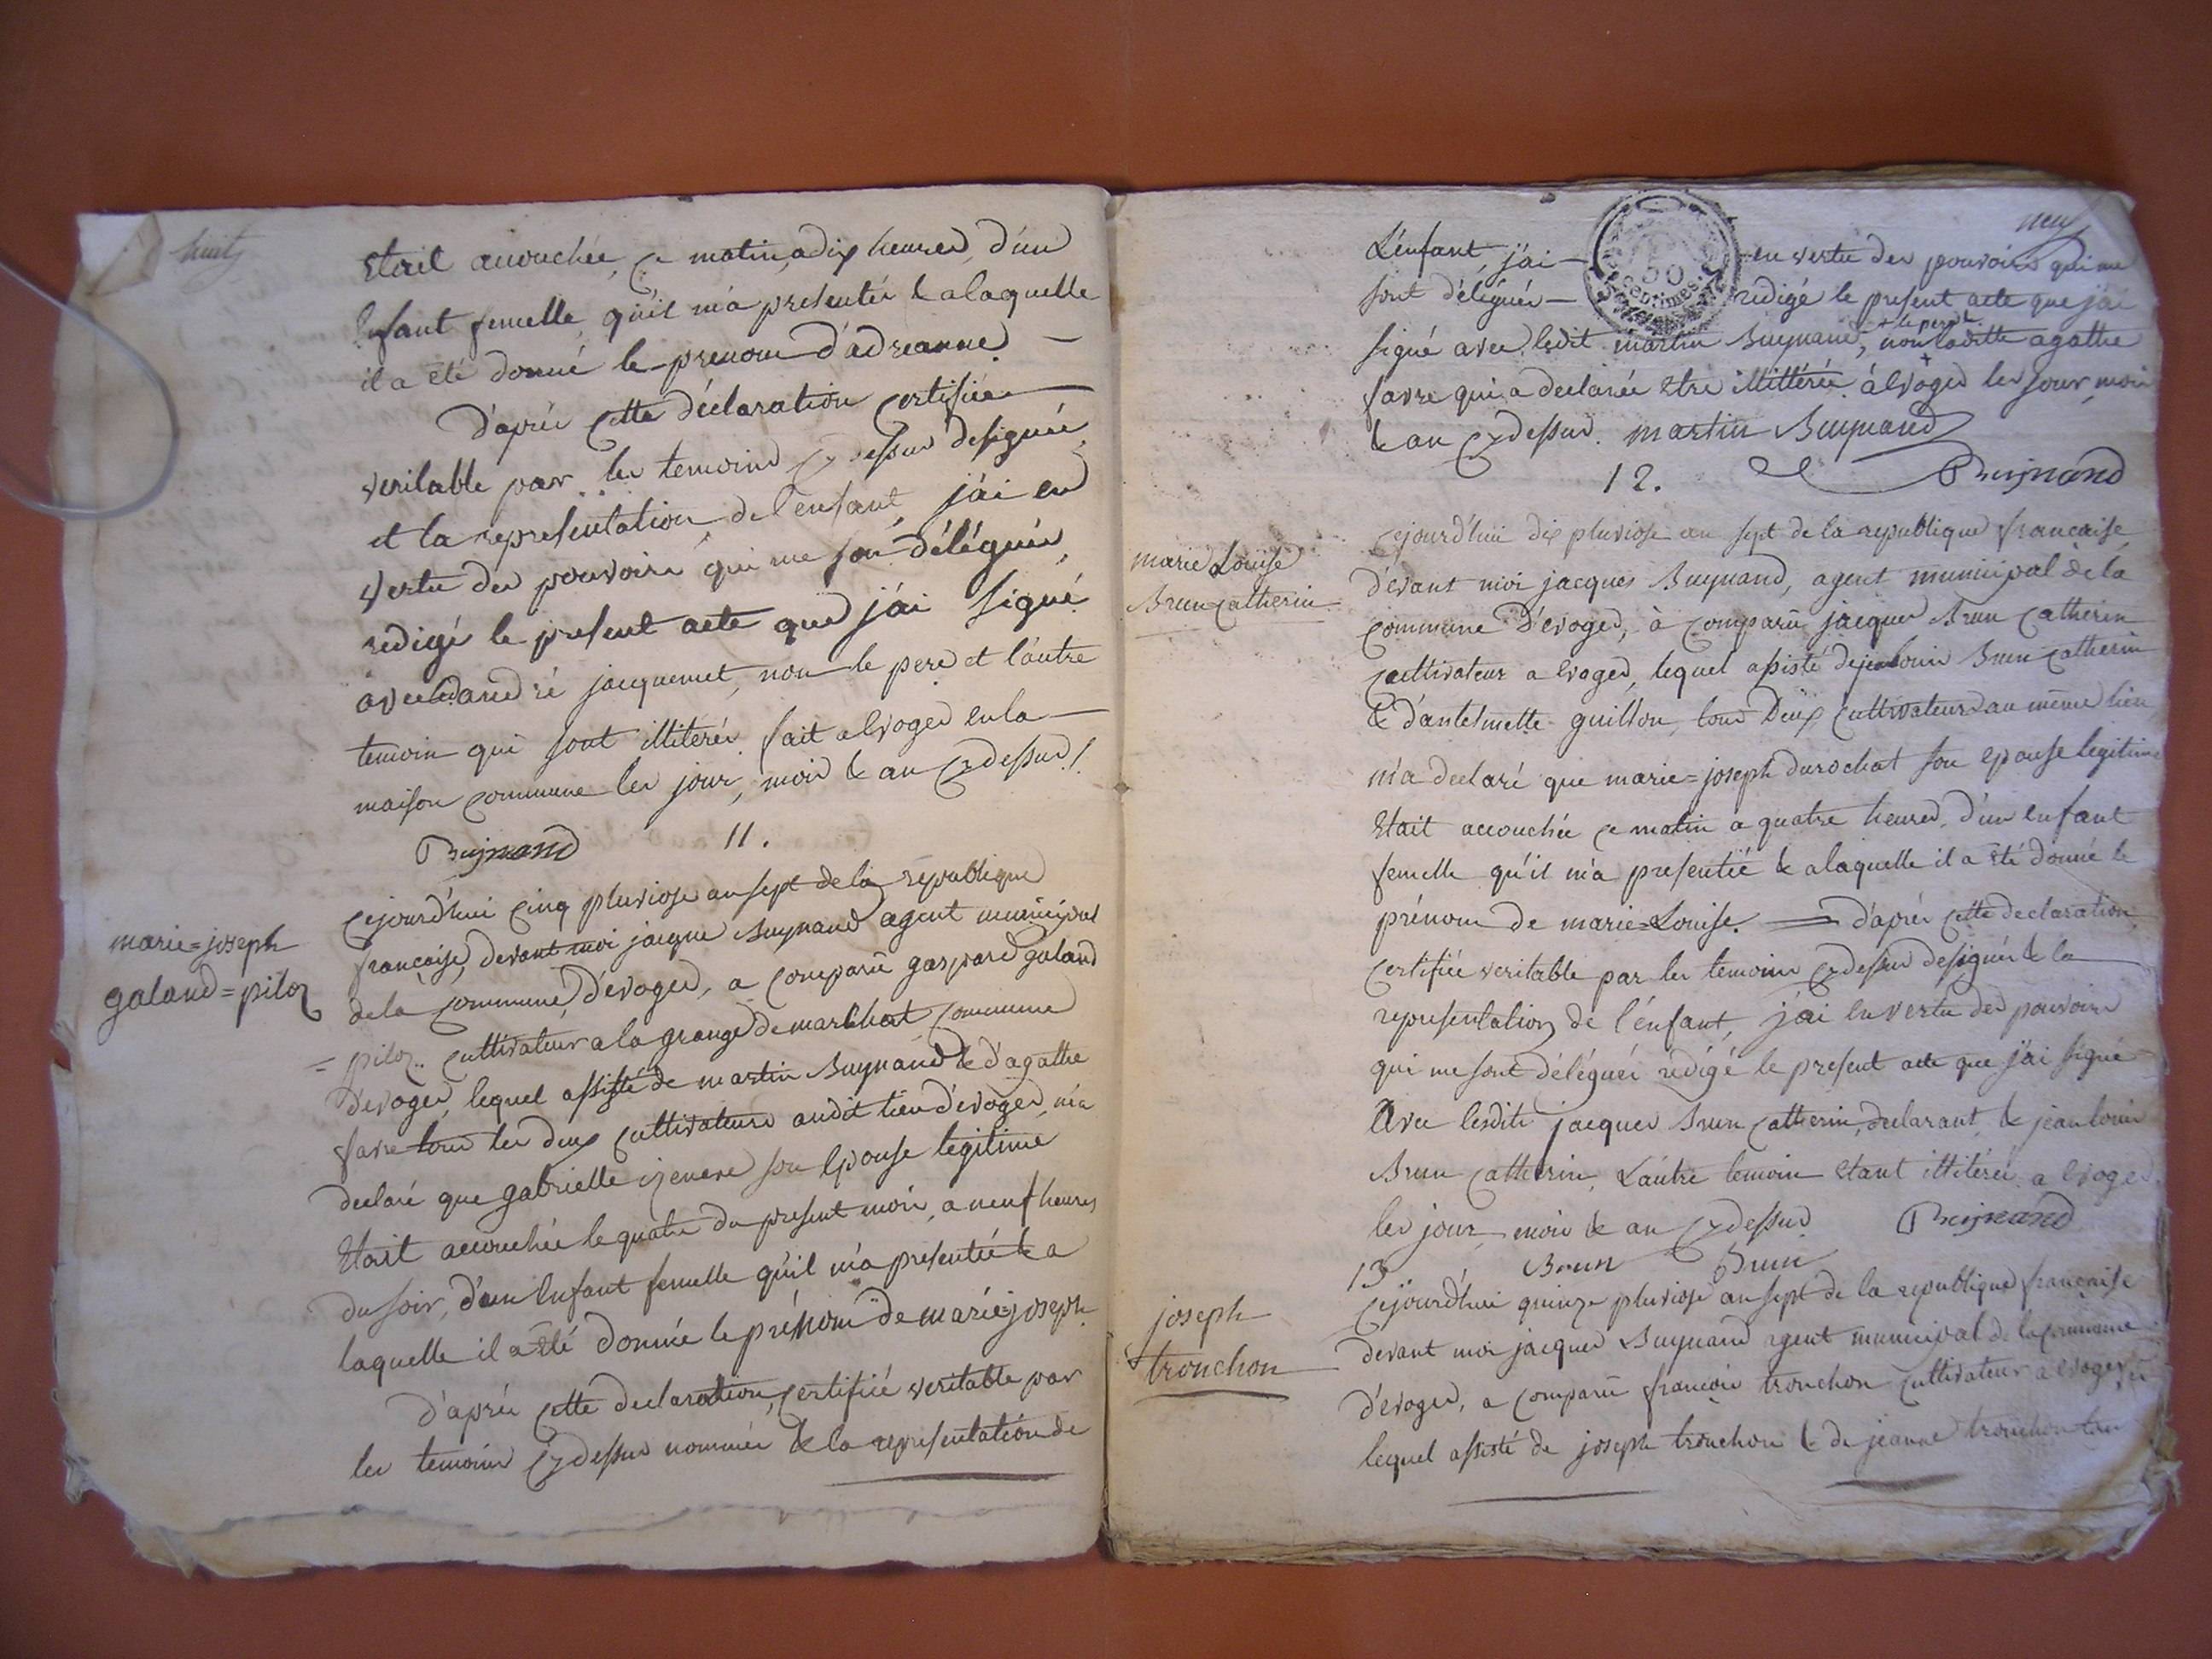 huit
Etait accouchée, ce matin, a dix heures, d'un
Enfant femelle, qu'il m'a presentée & a laquelle
il a été donné le prenom d'adreanne —
d'après cette déclaration certifiée
veritable par les temoins cy dessus designés,
et la representation de l'enfant, j'ai en
vertu des pouvoirs qui me sont délégués,
redigé le present acte que j'ai signé
avec andré jacquemet, non le pere et l'autre
temoin qui sont illiterés. fait a Evoges en la
maison commune les jour, mois & an cy dessus /.
Buynand 11.
marie=joseph
galand=piloz
Cejourd'hui cinq pluviose an sept de la republique
française, devant moi jacque Buynand agent municipal
de la commune d'evoges, a comparu gaspard galand
= piloz.. cultivateur a la grange de marchat commune
d'evoges, lequel assisté de martin Buynand & d'agathe
favre tous les deux cultivateurs audit lieu d'evoges, m'a
declaré que gabrielle son Epouse legitime
Etait accouchée le quatre du present mois, a neuf heures
du soir, d'un Enfant femelle qu'il m'a presentée & a
laquelle il a été donnée le prénom de marie=joseph
d'après cette declaration, certifiée veritable par
les temoins cy dessus nommés & la representation de
neuf
L'enfant, j'ai — en vertu des pouvoirs qui me
50
centimes
sont délégués — redigé le present acte que j'ai
signé avec ledit martin Buynand, non laditte agathe
+ le pere &
favre qui a declarée etre illittérée. à Evoges les jour, mois
& an cy dessus. martin Buynand
12. Buynand
marie Louise
Brun catherin
Cejourd'hui dix pluviose an sept de la republique française
devant moi jacques Buynand, agent municipal de la
commune d'evoges, à comparu jacques Brun catherin
cultivateur a Evoges, lequel assisté de jean louis Brun catherin
& d'antelmette guillon, tous Deux cultivateurs au même lieu
m'a declaré que marie=joseph durochat son epouse legitime
Etait accouchée ce matin a quatre heures, d'un enfant
femelle qu'il m'a presentée & a laquelle il a été donné le
prénom de marie=Louise. = d'après cette declaration
certifiée veritable par les temoins cy dessus designés & la
representation de l'énfant, j'ai en vertu des pouvoirs
qui me sont délégués rédigé le present acte que j'ai signé
avec lesdits jacques Brun catherin, declarant, & jean louis
Brun catherin, L'autre temoin etant illitérée. a Evoges
les jour, mois & an cy dessus Buynand
13 Brun Brun
joseph
tronchon
Cejourd'hui quinze pluviose an sept de la republique française
devant moi jacques Buynand agent municipal de la commune
d'évoges, a comparu françois tronchon cultivateur a Evoges
lequel assisté de joseph tronchon & de jeanne tronchon tous